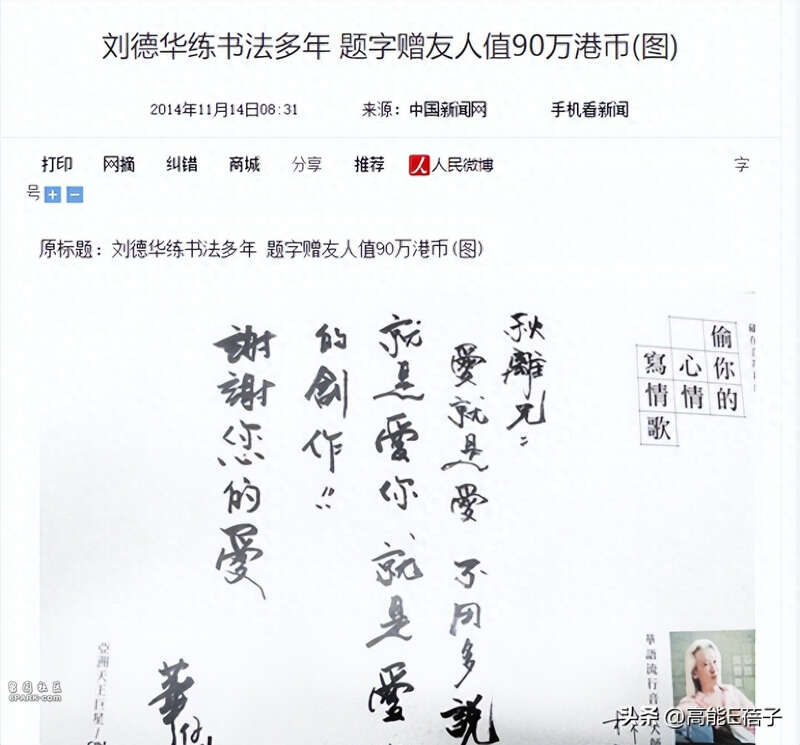 刘德华练书法多年 题字赠友人值90万港币(图)
2014年11月14日08:31 来源：中国新闻网 手机看新闻
打印 网摘 纠错 商城 分享 推荐 人民微博 字
号
原标题：刘德华练书法多年 题字赠友人值90万港币(图)
偷你的
心情
寫情歌
秋離兄：
愛就是愛 不用多說
就是愛你 就是愛
的創作!!
謝謝您的愛
華
亞洲天王巨星/
華語流行音
6PARK.COM
头条 @高能E蓓子